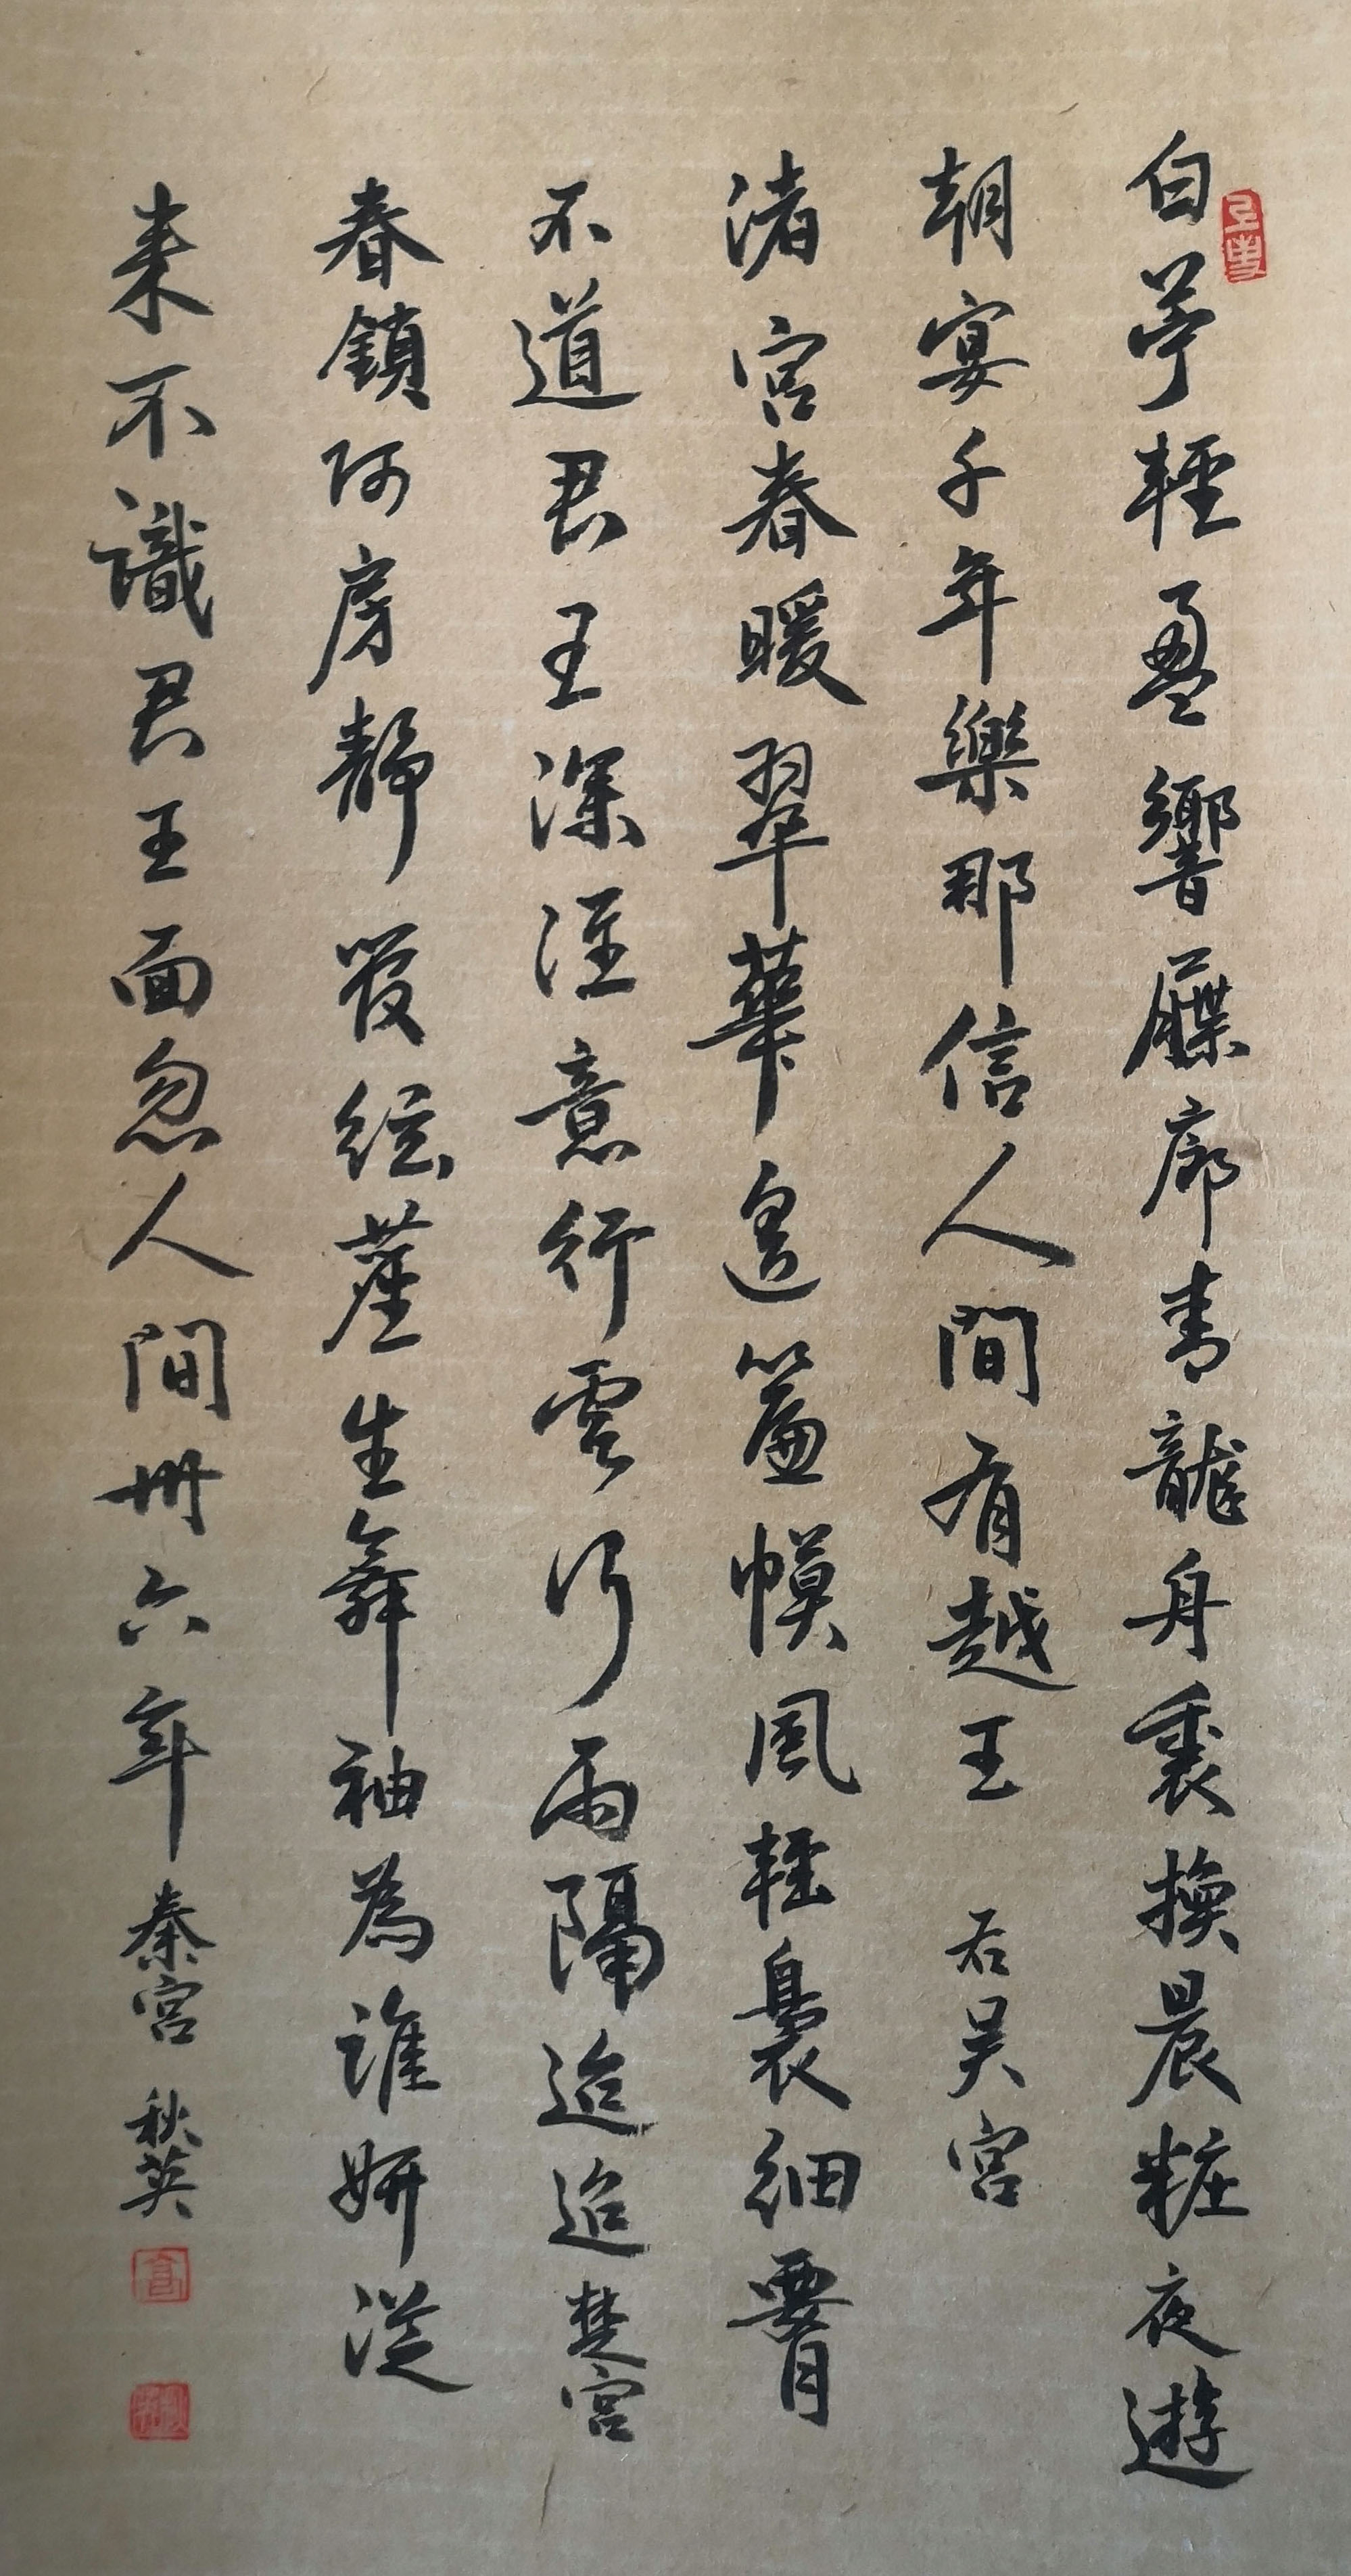 白苧輕盈響屧廊青龍舟裏換晨粧夜遊
朝宴千年樂那信人間有越王 右吴宮
渚宮春暖翠華遙簾幙風輕裊細腰
不道君王深注意行雲行雨隔迢迢 楚宮
春鎖阿房靜管絃塵生舞袖為誰妍從
来不識君王面忽人間卅六年 秦宮 秋英